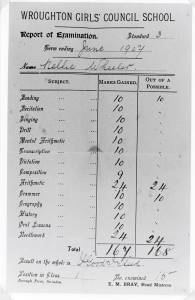 WROUGHTON GIRLS' COUNCIL SCHOOL.
Report of Examination. Standard 3
Term ending June 1907
Name Nellie Wheeler
SUBJECT. MARKS GAINED. OUT OF A POSSIBLE.
Reading 10 10
Recitation 10
Singing 10
Drill 10
Mental Arithmetic 10
Transcription 10
Dictation 10
Composition 9
Arithmetic 24 24
Grammar 10 10
Geography 10
History 10
Oral Lessons 10
Needlework 24 24
Total 167 168
Result on the whole is
Position in Class 1 No. examined 15
E. M. BRAY, Head Mistress.